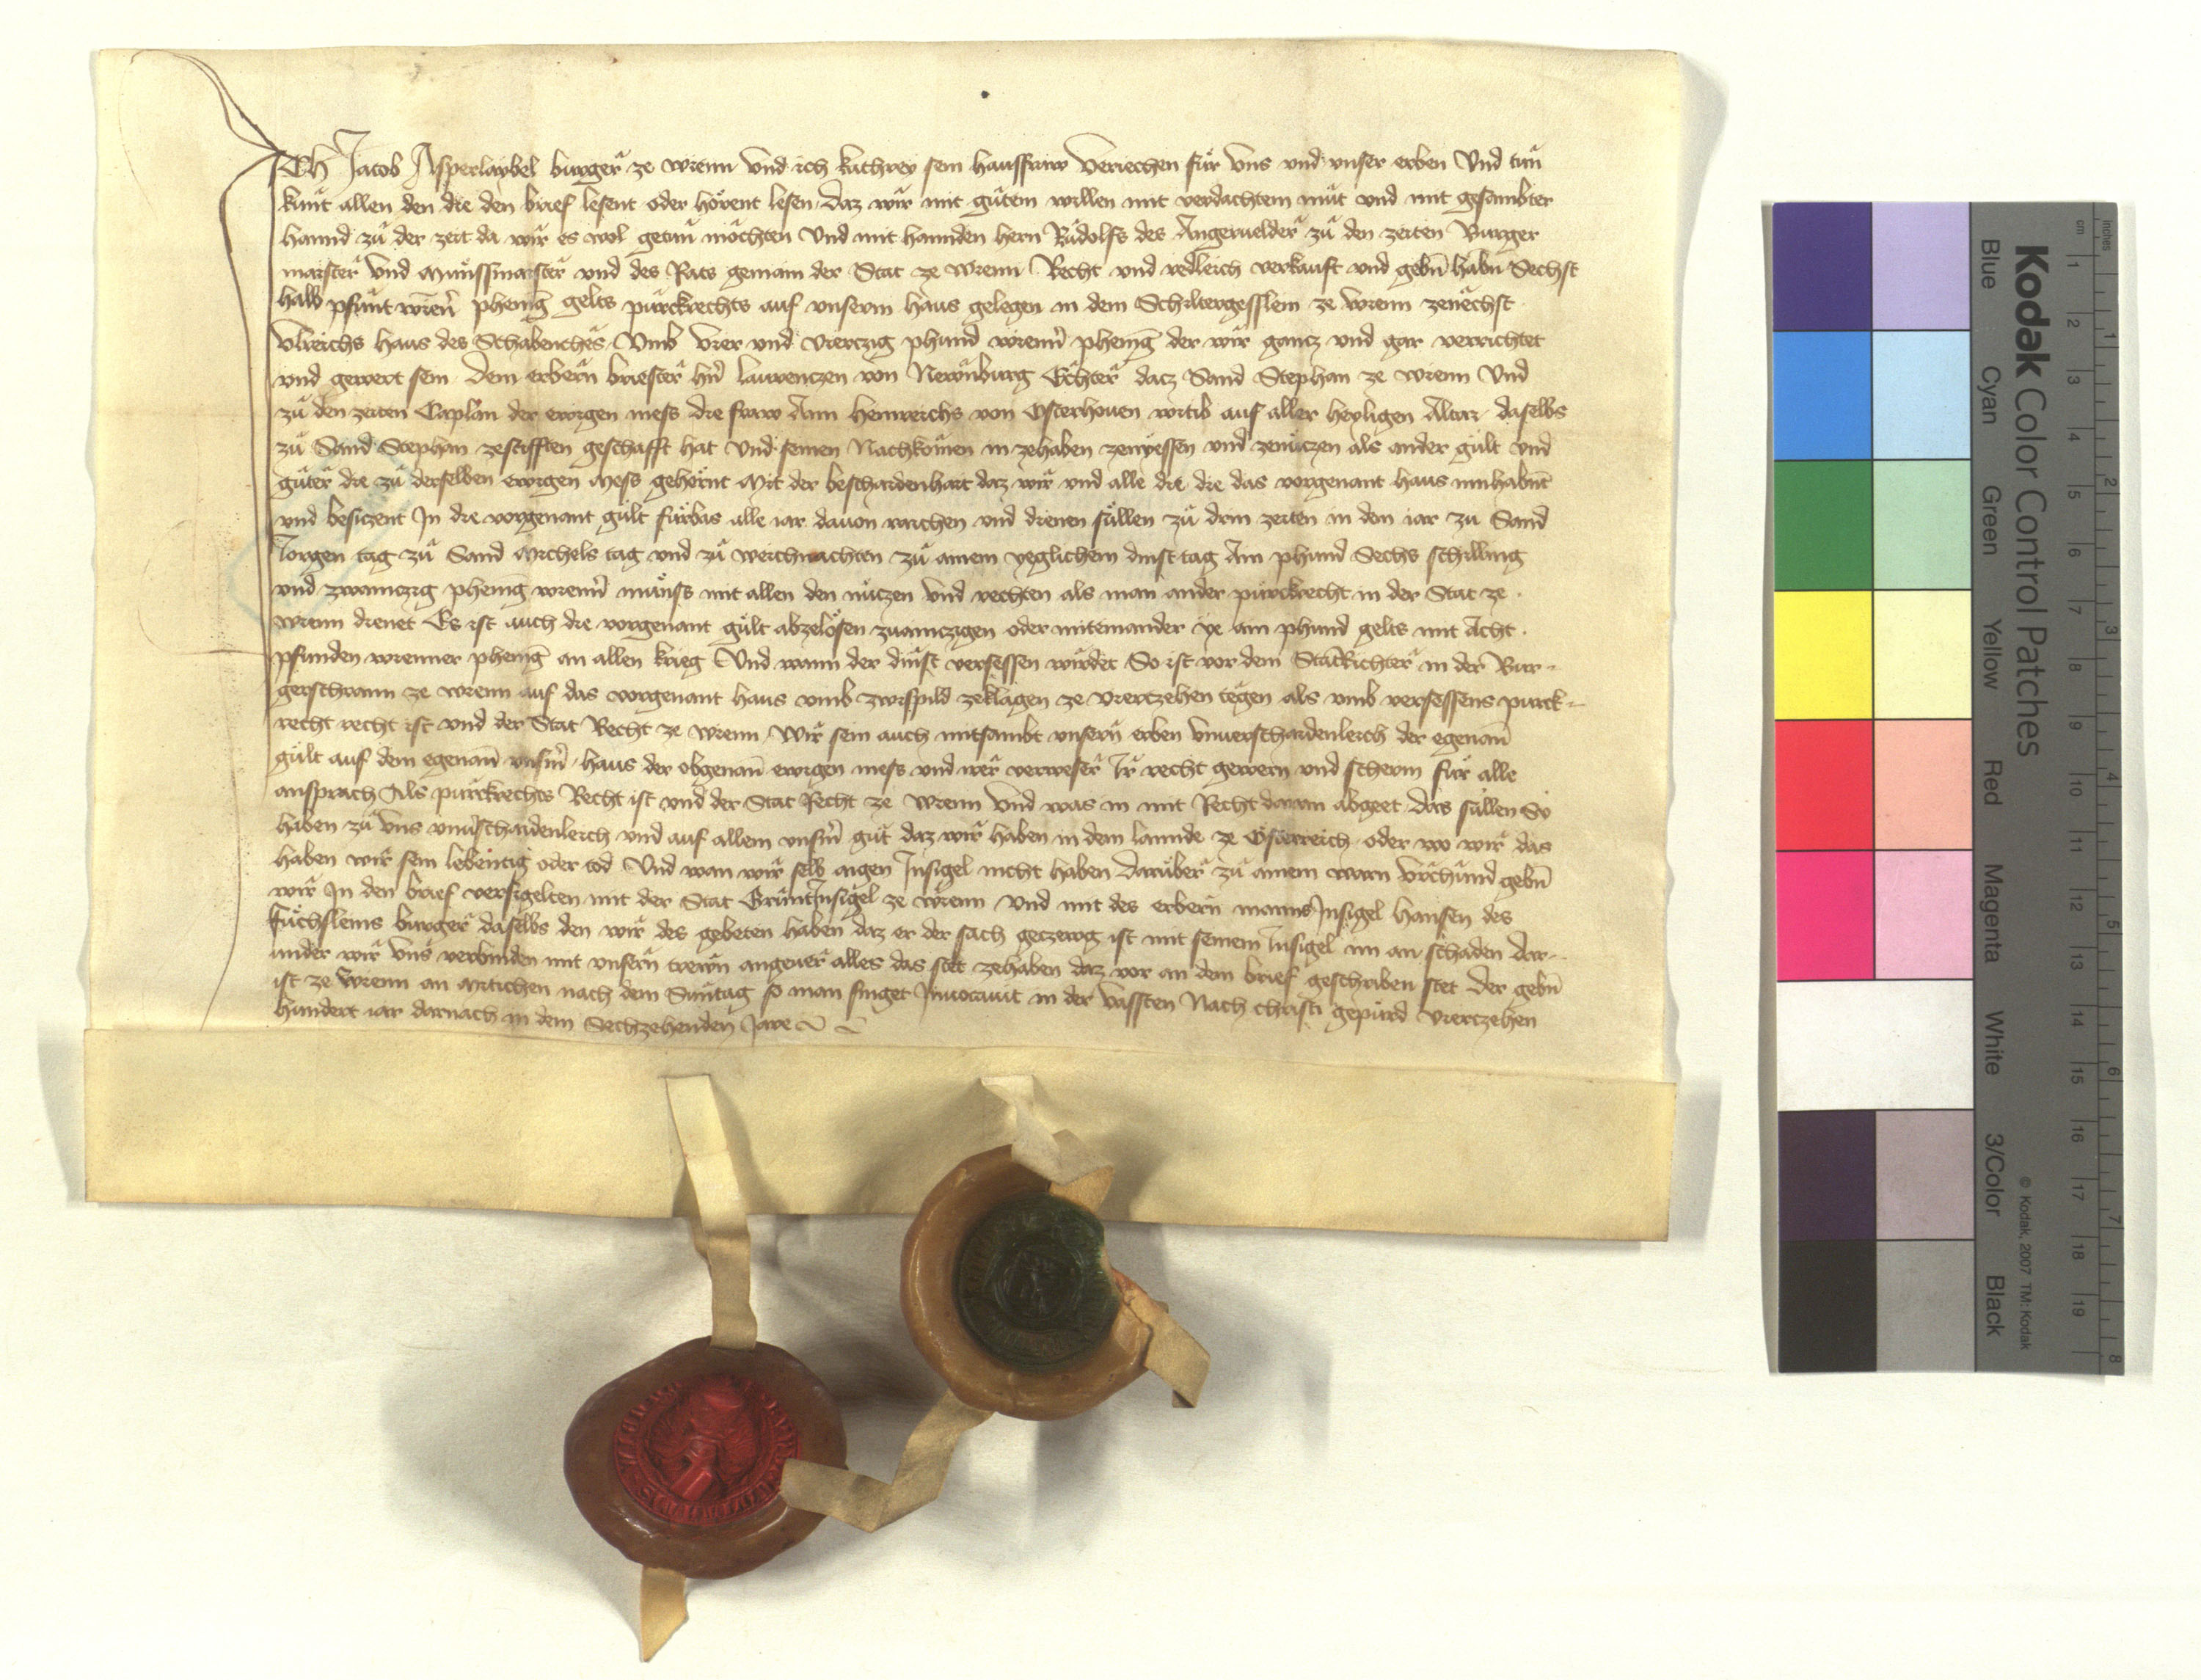 Ich Jacob Asperlaybel burger ze wienn und ich kathrey sein hausfraw veriechen für uns und unser erben Und tun
kunt allen den die den brief lesent oder hörent lesen daz wir mit gutem willen mit verdachtem mut und mit gesambter
hannd zu der zeit da wir es wol getun mochten Und mit hannden hern Rudolfs des Angeruelder zu den zeiten Burger
maister Und Münssmaister und des Rats gemain der Stat ze wienn Recht und redleich verkauft und gebn habn Sechst
halb pfunt wienn phenig gelts purckrechts auf unserm haus gelegen in dem Schiltergesslein ze wienn zenechst
Ulreichs haus des Umb vier und vierczig phund wienn phenig der wir gancz und gar verrichtet
und gewert sein Dem erbern briester hn laurenczen von Newnburg Echter dacz Sand Stephan ze wienn Und
zu den zeiten Caplan der ewigen mess die fraw Ann heinreichs von Osterhouen witib auf aller heyligen Altar daselbs
zu Sand Stephan zestifften geschafft hat Und seinen Nachkomen in zehaben zenyessen und zenuczen als ander gült und
güter die zu derselben ewigen Mess gehornt Mit der beschaidenhait daz wir und alle die die das vorgenant haus innhabnt
und besiczent In die vorgenant gült fürbas alle iar dauon raichen und dienen süllen zu drin zeiten in dem iar zu Sand
Jorgen tag zu Sand Michels tag und zu weichnachten zu ainem yeglichem dinst tag Ain phund Sechs schilling
und zwainczig phenig wienn münss mit allen den nuczen Und rechten als man ander purckrecht in der Stat ze
wienn dienet Es ist auch die vorgenant gült abzelösen zuainczigen oder miteinander ye ain phund gelts mit Acht
pfunden wienner phenig an allen krieg Und wann der dinst versessen wurdet So ist vor dem Statrichter in der Bur
gerschrann ze wienn auf das vorgenant haus umb zwispild zeklagen ze vierczehen tegen als umb versessens purck
recht recht ist und der Stat Recht ze wienn Wir sein auch mitsambt unsern erben unuerschaidenleich der egenan
gült auf dem egenan unserm haus der obgenan ewigen mess und irer verweser Ir recht gewern und scherm für alle
ansprach Als purckrechts Recht ist und der Stat Recht ze wienn Und was in mit Recht daran abgeet Das süllen Sy
haben zu uns unuerschaidenleich und auf allem unserm gut daz wir haben in dem lannde ze Österreich oder wo wir das
haben wir sein lebentig oder tod Und wan wir selb aigen Insigel nicht haben Darüber zu ainem warn urchund gebn
wir In den brief versigelten mit der Stat Gruntinsigel ze wienn Und mit des erbern manns Insigel Hansen des
Füchsleins burger daselbs den wir des gebeten haben daz er der sach geczewg ist mit seinem Insigel im an schaden Dar
under wir uns verbinden mit unsern trewn angeuer alles das stet zehaben daz vor an dem brief geschriben stet Der gebn
ist ze Wienn an Mitichen nach dem Suntag so man singet Inuocauit in der Vassten Nach christi gepurd vierczehen
hundert iar darnach in dem Sechzehenden Jare
Kodak Color Control Patches
Blue Cyan Green Yellow Red Magenta White 3/Color Black
© Kodak, 2007 TM: Kodak
inches 1 2 3 4 5 6 7 8
cm 1 2 3 4 5 6 7 8 9 10 11 12 13 14 15 16 17 18 19